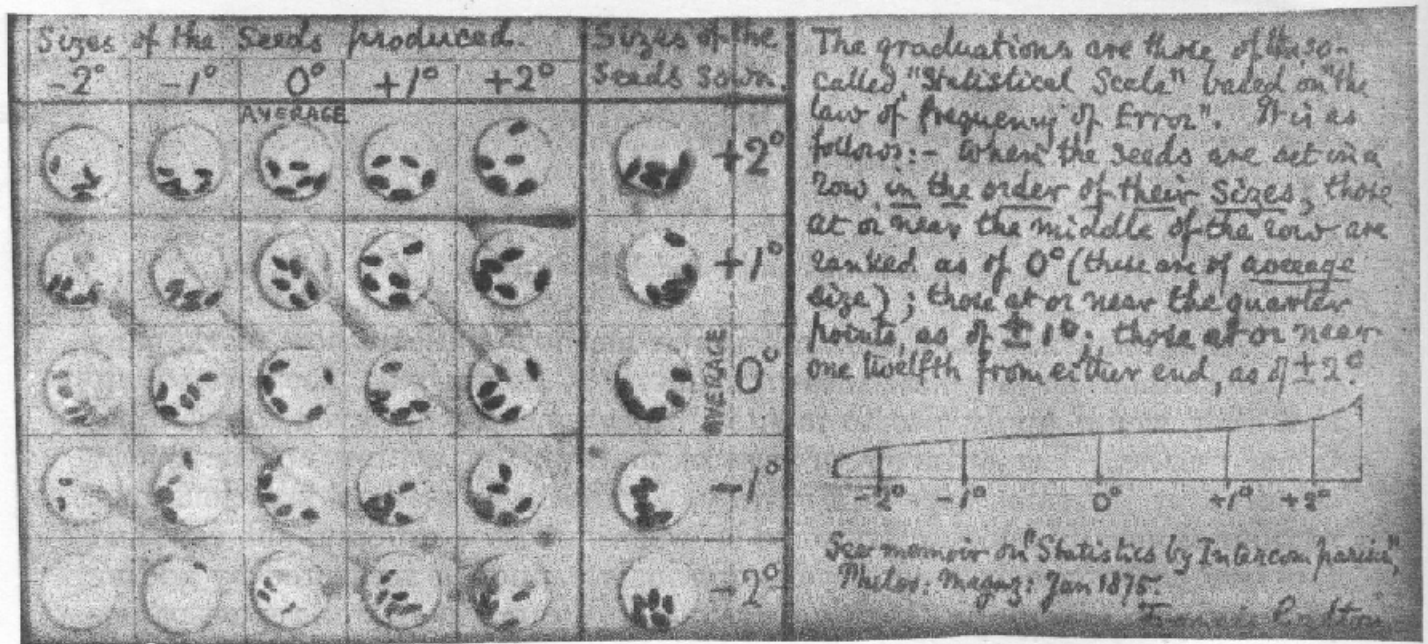 Sizes of the Seeds produced.
-2° -1° 0° +1° +2°
AVERAGE
Sizes of the
Seeds Sown.
+2°
+1°
0°
AVERAGE
-1°
-2°
The graduations are those of the so-
called "Statistical Scale" based on "the
law of Frequency of Error". It is as
follows:- When the seeds are set in a
row, in the order of their sizes, those
at or near the middle of the row are
ranked as of 0° (these are of average
size); those at or near the quarter
points, as of ± 1°: those at or near
one twelfth from either end, as of ± 2°.
-2° -1° 0° +1° +2°
See memoir on "Statistics by Intercomparison",
Philos: Magaz: Jan 1875.
Francis Galton